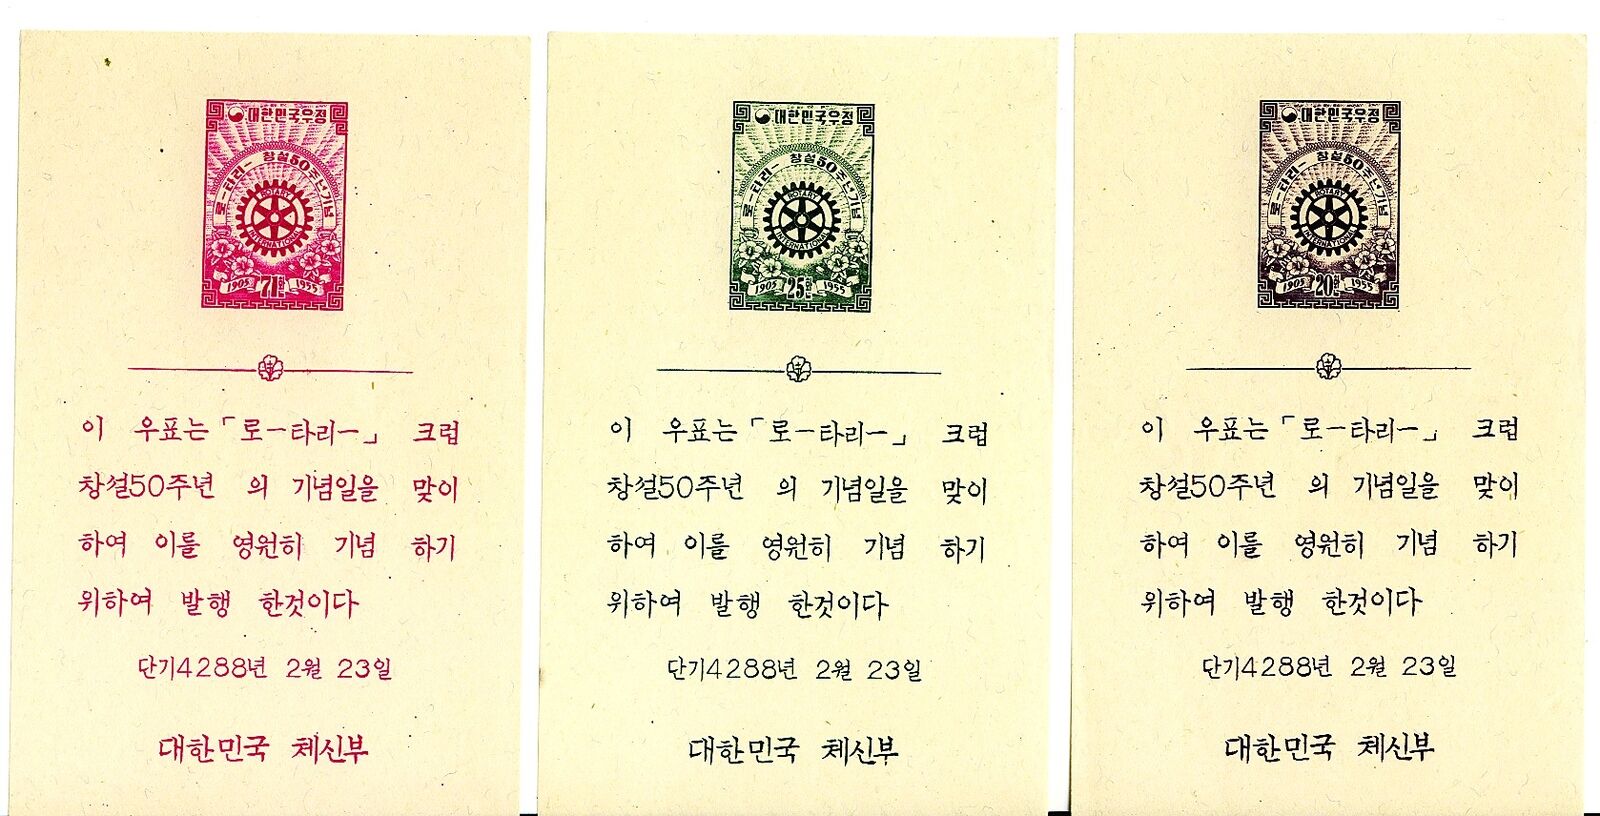 대한민국우정
로-타리- 창설50주년기념
ROTARY
INTERNATIONAL
1905 71환 1955
이 우표는「로-타리-」 크럽
창설50주년 의 기념일을 맞이
하여 이를 영원히 기념 하기
위하여 발행 한것이다
단기4288년 2월 23일
대한민국 체신부
대한민국우정
로-타리- 창설50주년기념
ROTARY
INTERNATIONAL
1905 25환 1955
이 우표는「로-타리-」 크럽
창설50주년 의 기념일을 맞이
하여 이를 영원히 기념 하기
위하여 발행 한것이다
단기4288년 2월 23일
대한민국 체신부
대한민국우정
로-타리- 창설50주년기념
ROTARY
INTERNATIONAL
1905 20환 1955
이 우표는「로-타리-」 크럽
창설50주년 의 기념일을 맞이
하여 이를 영원히 기념 하기
위하여 발행 한것이다
단기4288년 2월 23일
대한민국 체신부